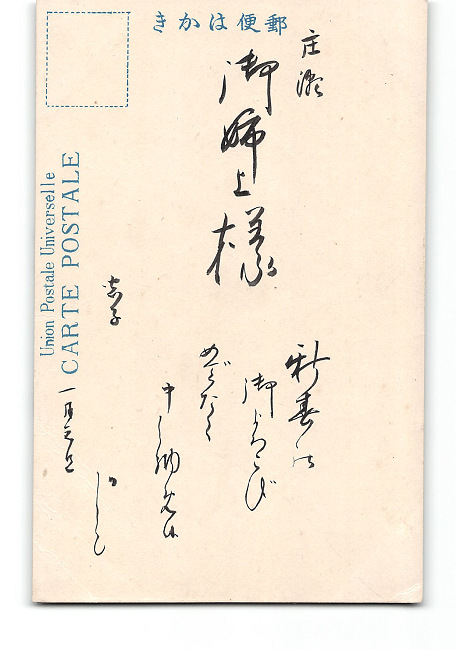 郵便はかき
御姉上様
新春の
御よろこび
めでたく
申し納め候
一月元旦
Union Postale Universelle
CARTE POSTALE